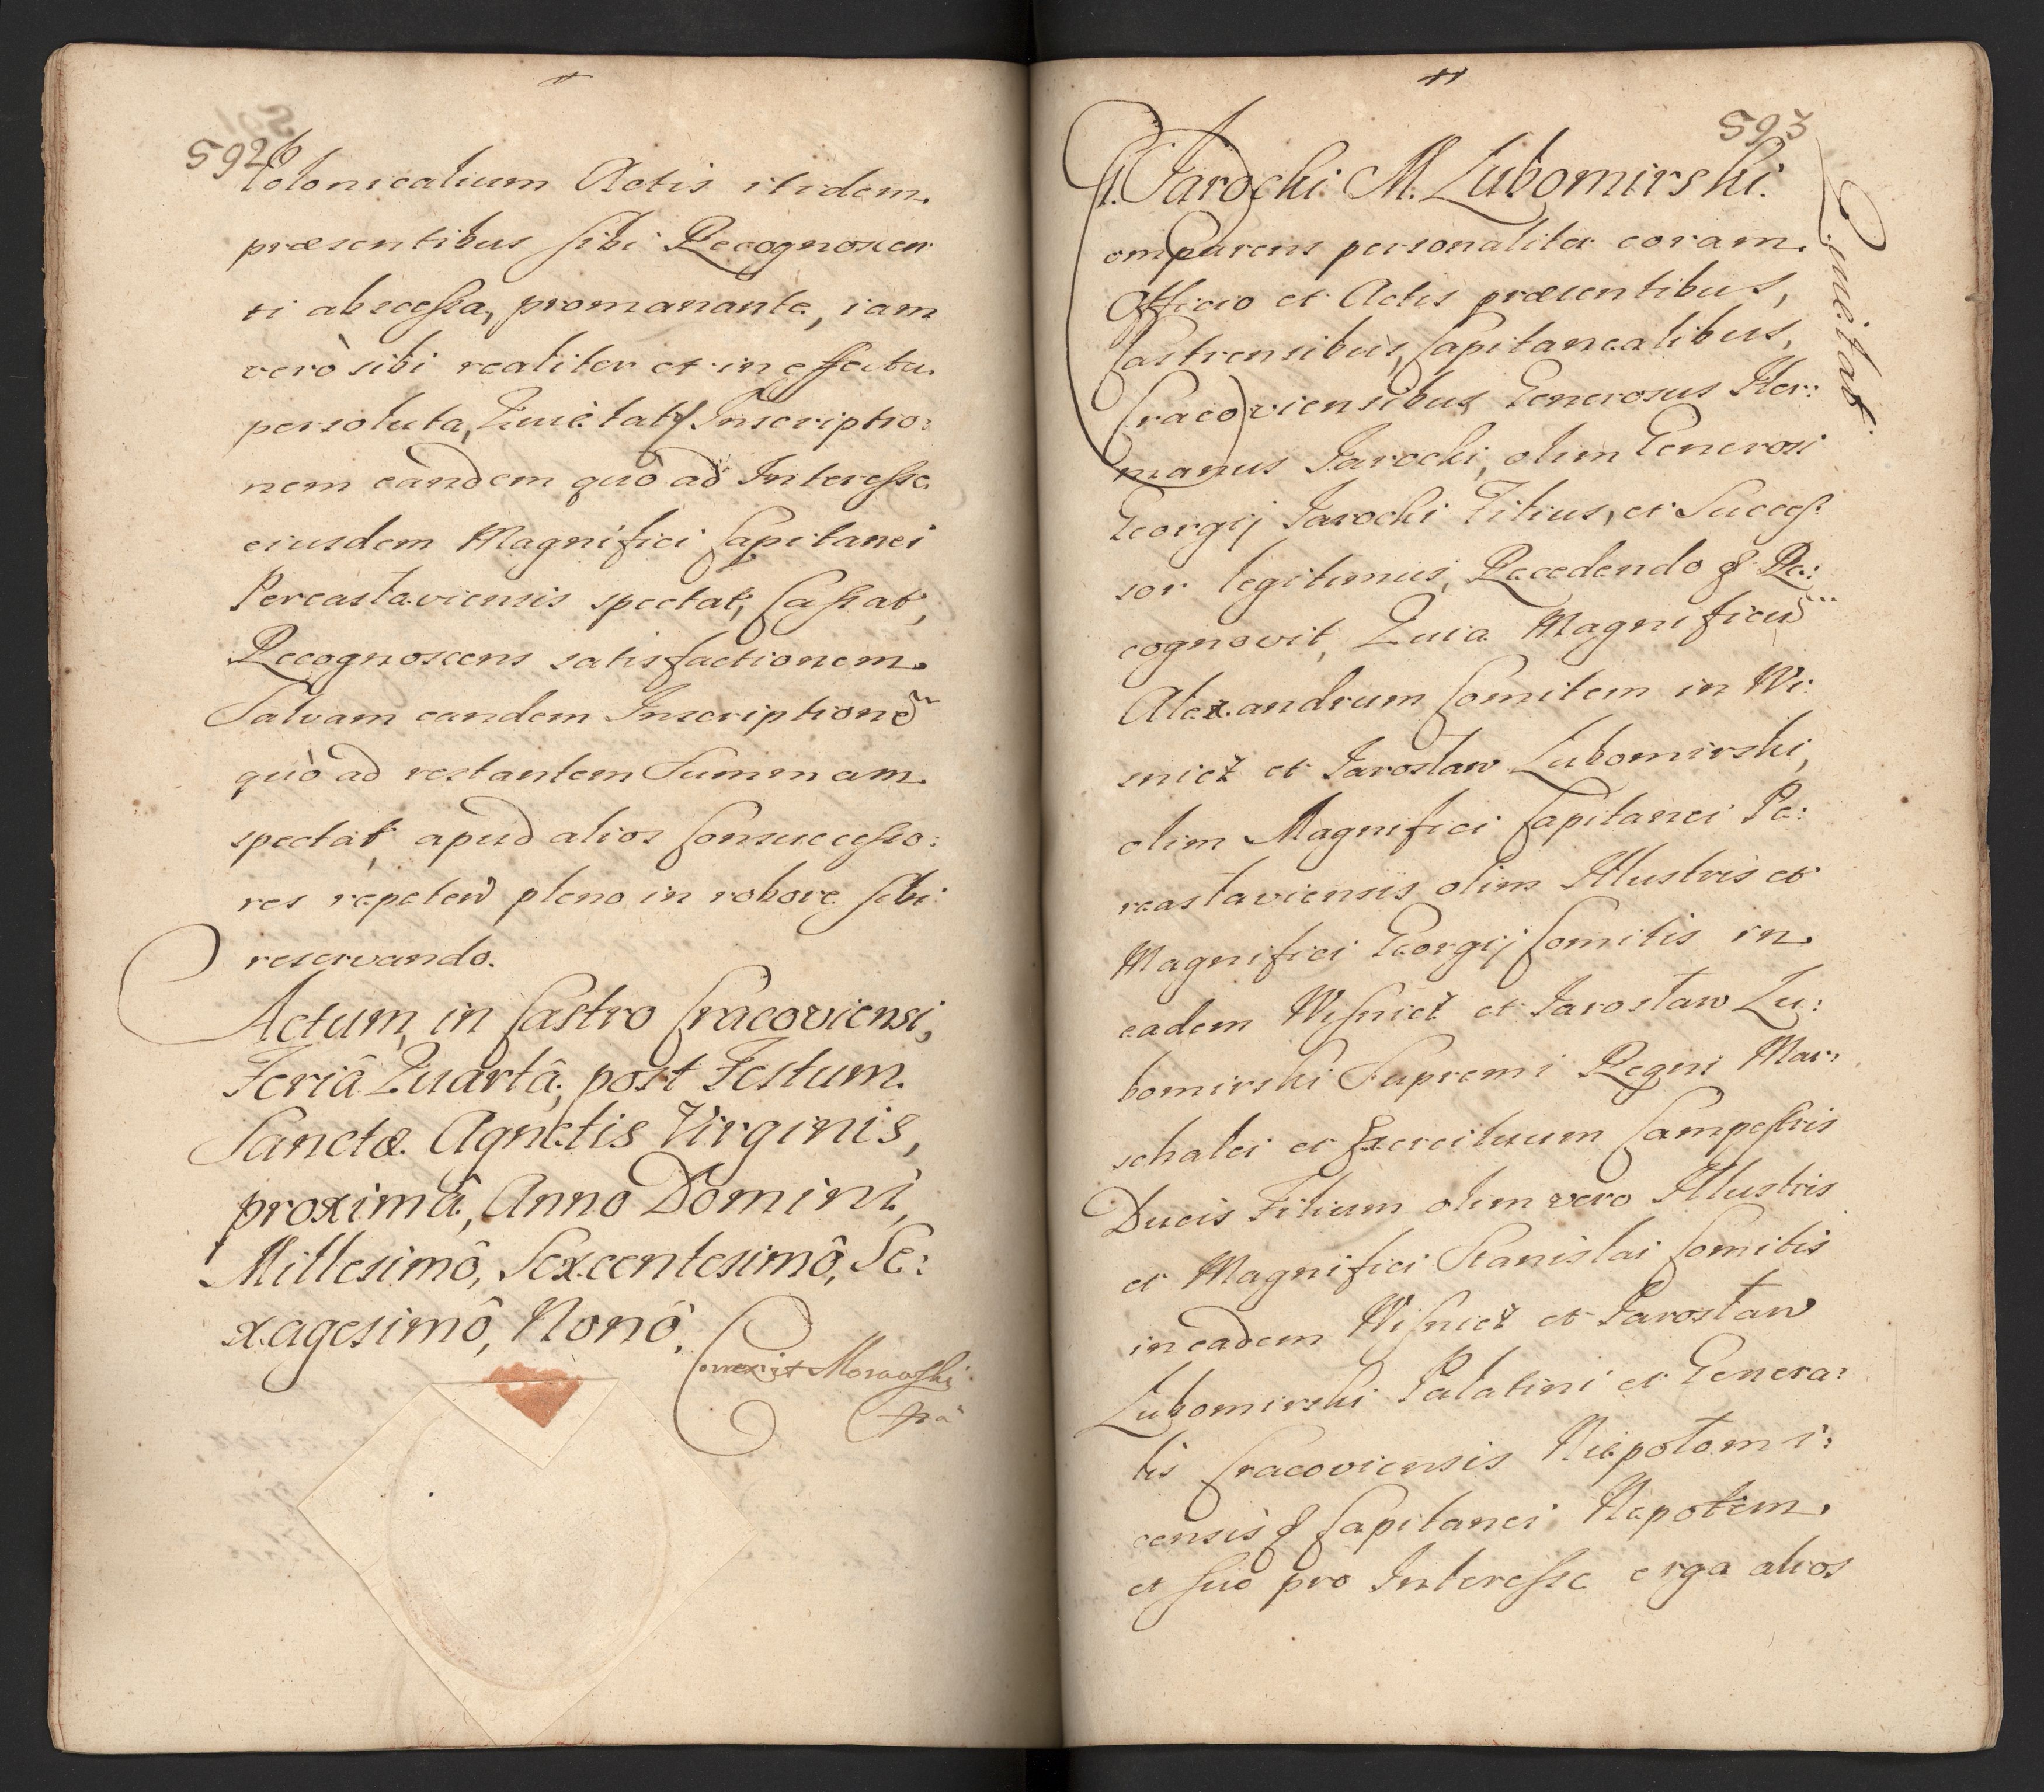 592
Colonicalium Actis itidem
præsentibus sibi Recognoscen
ti abscessa, promanante, iam
verò sibi realiter et in effectu
persoluta, Quietat, Inscriptio:
nem eandem quò ad Interesse
eiusdem Magnifici Capitanei
Pereaslaviensis spectat, Cassat,
Recognoscens satisfactionem.
Salvam eandem Inscriptionẽ
quò ad restantem Summam
spectat, apud alios Consuccesso:
res repeten pleno in robore sibi
reservando.
Actum, in Castro Cracoviensi,
Feriâ Quartâ, post Festum
Sanctæ Agnetis Virginis,
proximâ, Anno Domini,
Millesimô, Sexcentesimô, Se:
xagesimô, Nonô.
Correxit Morawski
593
G. Jarocki M. Lubomirski.
Quietat
Comparens personaliter coram
Officio et Actis præsentibus,
Castrensibus, Capitanealibus,
Cracoviensibus Generosus Her:
manus Jarocki, olim Generosi
Georgij Jarocki Filius, et Succes
sor legitimus, Recedendo & Re:
cognovit, Quia Magnificũ
Alexandrum Comitem in Wi
snicz et Jaroslaw Lubomirski,
olim Magnifici Capitanei Pe:
reaslaviensis olim Illustris et
Magnifici Georgij Comitis in
eadem Wisnicz et Jaroslaw Lu:
bomirski Supremi Regni Mar:
schalci et Exercituum Campestris
Ducis Filium olim vero Illustris
et Magnifici Stanislai Comitis
in eadem Wisnicz et Jaroslaw
Lubomirski Palatini et Genera:
lis Cracoviensis Niepolomi:
censis & Capitanei Nepotem
et suo pro Interesse erga alios